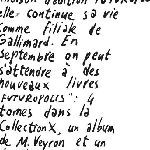 elle continue sa vie
comme filiale de
Gallimard. En
septembre on peut
s'attendre à des
nouveaux livres
"FUTUROPOLIS": 4
tomes dans la
Collection X, un album
de M. Veyron et un